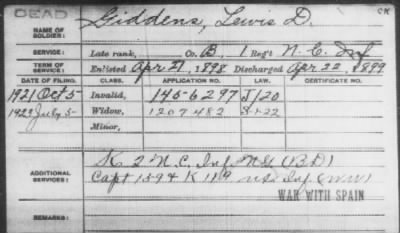 DEAD
CK
NAME OF SOLDIER: Giddens, Lewis D.
SERVICE: Late rank, Co. B, 1 Reg't N.C. Inf
TERM OF SERVICE: Enlisted Apr 27, 1898 Discharged Apr 22, 1899
DATE OF FILING. CLASS. APPLICATION NO. LAW. CERTIFICATE NO.
1921 Oct 5 Invalid, 1456297 J120
1923 July 5 Widow, 1207482 S-1-22
Minor,
ADDITIONAL SERVICES: K 2 N.C. Inf NG (BD)
Capt K 119 US Inf (WW)
WAR WITH SPAIN
REMARKS: